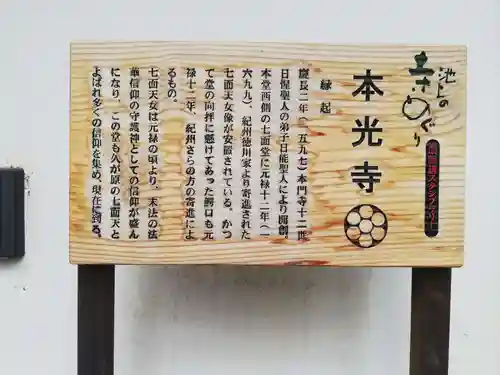 池上の
寺めぐり
本光寺
縁起
慶長二年(一五九七)本門寺十二世
日惺聖人の弟子日能聖人により開創。
本堂西側の七面堂に元禄十二年(一
六九九)、紀州徳川家より寄進された
七面天女像が安置されている。かつ
て堂の向拝に懸けてあった鰐口も元
禄十二年、紀州さらの方の寄進によ
るもの。
七面天女は元禄の頃より、末法の法
華信仰の守護神としての信仰が盛ん
になり、この堂も久が原の七面天と
よばれ多くの信仰を集め、現在に到る。